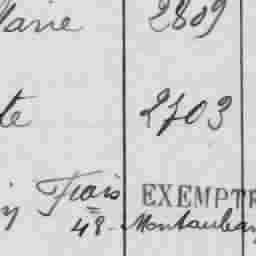 Marie 2809
te 2703
Frais EXEMPTE
48 - Montauban